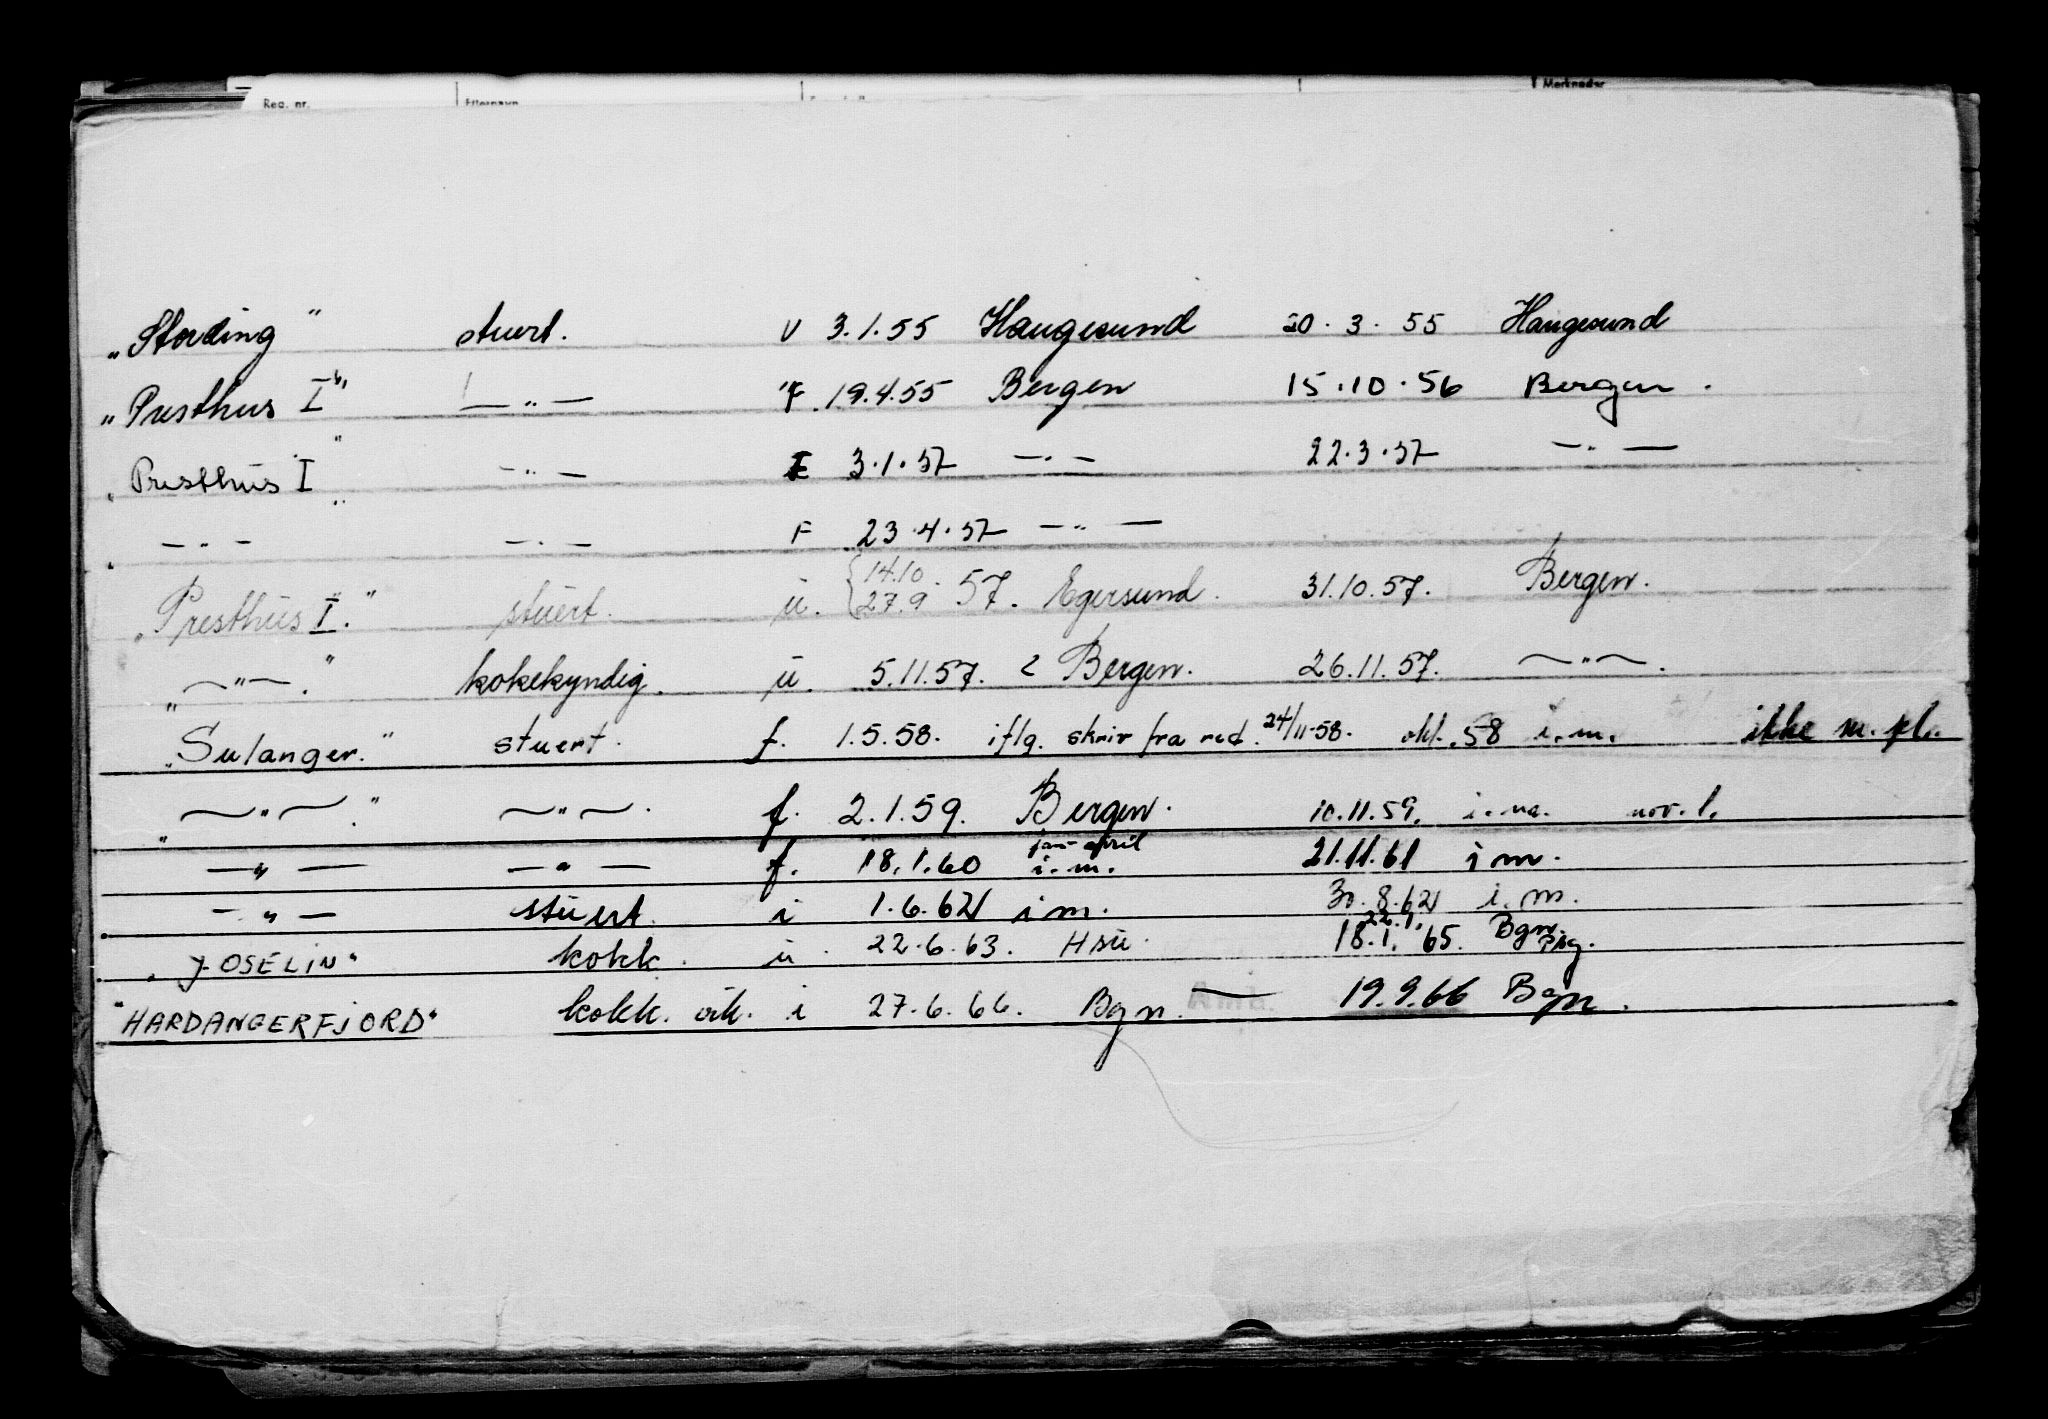 Reg. nr. Etternavn Merknader
„Stording" stuert. v 3.1.55 Haugesund 20.3.55 Haugesund
„Presthus I" —"— F. 19.4.55 Bergen 15.10.56 Bergen.
„Presthus I" —"— F 3.1.57 —"— 22.3.57 —"—
—"— —"— F 23.4.57 —"—
„Presthus I." stuert. u. {14.10 27.9 .57. Egersund. 31.10.57. Bergen.
„—"—." kokekyndig. u. 5.11.57. Bergen. 26.11.57. —"—.
„Sulanger." stuert. f. 1.5.58. iflg. skriv fra red. 24/11-58. okt. 58 i.m. ikke m. pl.
„—"—." —"—. f. 2.1.59. Bergen. 10.11.59. i.m. nov. 1.
—"— —"— f. 18.1.60 jan-april i.m. 21.11.61 i m.
—"— stuert. i 1.6.62 i m. 30.8.62 i.m.
„JOSELIN" kokk. u. 22.6.63. Hsu. 22.1. 18.1.65. Bgn.
"HARDANGERFJORD" kokk. i 27.6.66. Bgn. — 19.9.66 Bgn.